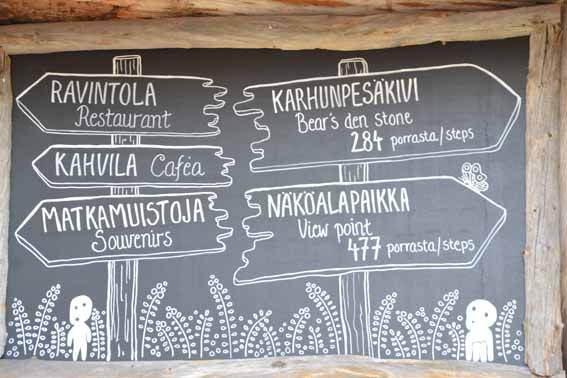 RAVINTOLA
Restaurant
KAHVILA Caféa
MATKAMUISTOJA
Souvenirs
KARHUNPESÄKIVI
Bear's den stone
284 porrasta/steps
NÄKÖALAPAIKKA
View point
477 porrasta/steps